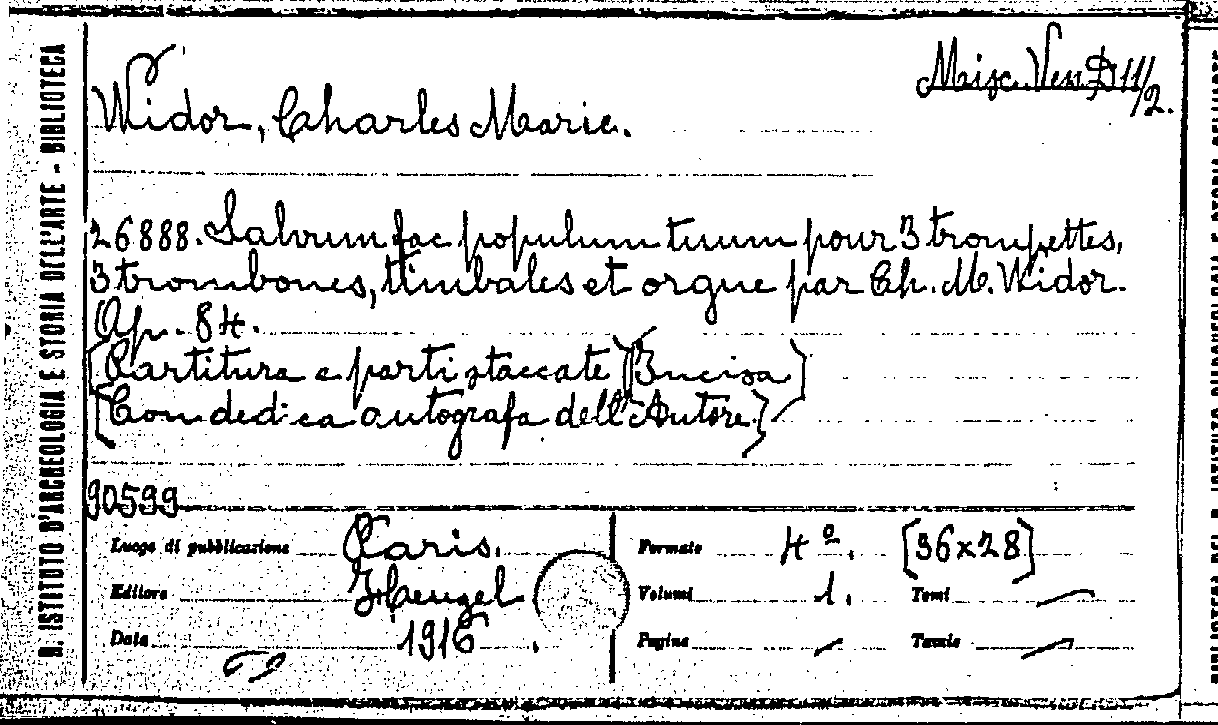 Misc. Ven. D 11/2.
Widor, Charles Marie.
26888. Salvum fac populum tuum pour 3 trompettes,
3 trombones, timbales et orgue par Ch. M. Widor.
Op. 84.
[Partitura e parti staccate] [Incisa]
[Con dedica autografa dell'Autore]
90599
Luogo di pubblicazione Paris.
Editore Heugel
Data 1916
Formato 4º. [36x28]
Volumi 1. Tomi —
Pagine — Tavole —
R. ISTITUTO D'ARCHEOLOGIA E STORIA DELL'ARTE - BIBLIOTECA